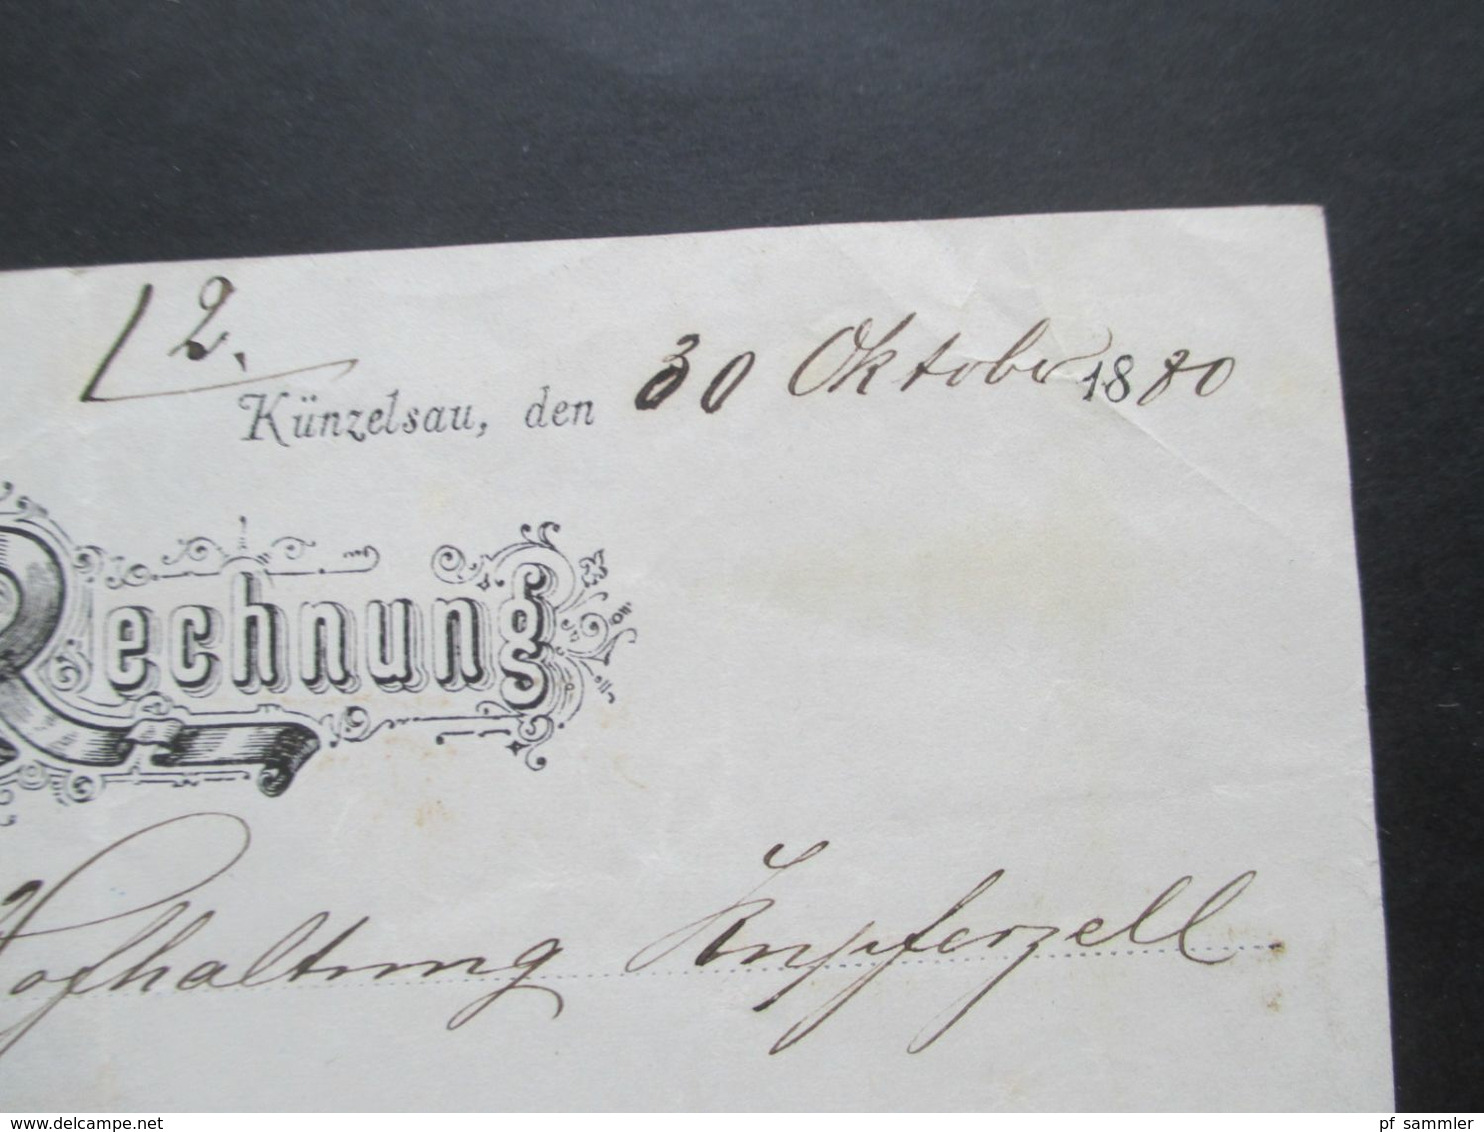 2.
Künzelsau, den 30 Oktober 1880
Rechnung
Hofhaltung Kupferzell
www.delcampe.net
pf_sammler